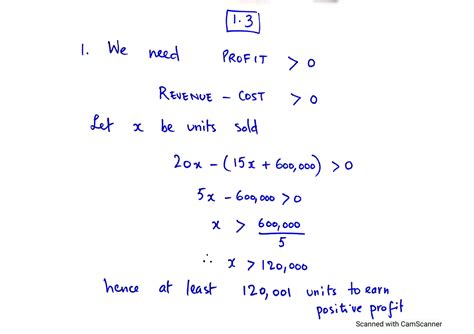 1.3
1. We need PROFIT > 0
REVENUE - COST > 0
Let x be units sold
20x - (15x + 600,000) > 0
5x - 600,000 > 0
x > 600,000/5
∴ x > 120,000
hence at least 120,001 units to earn
positive profit
Scanned with CamScanner